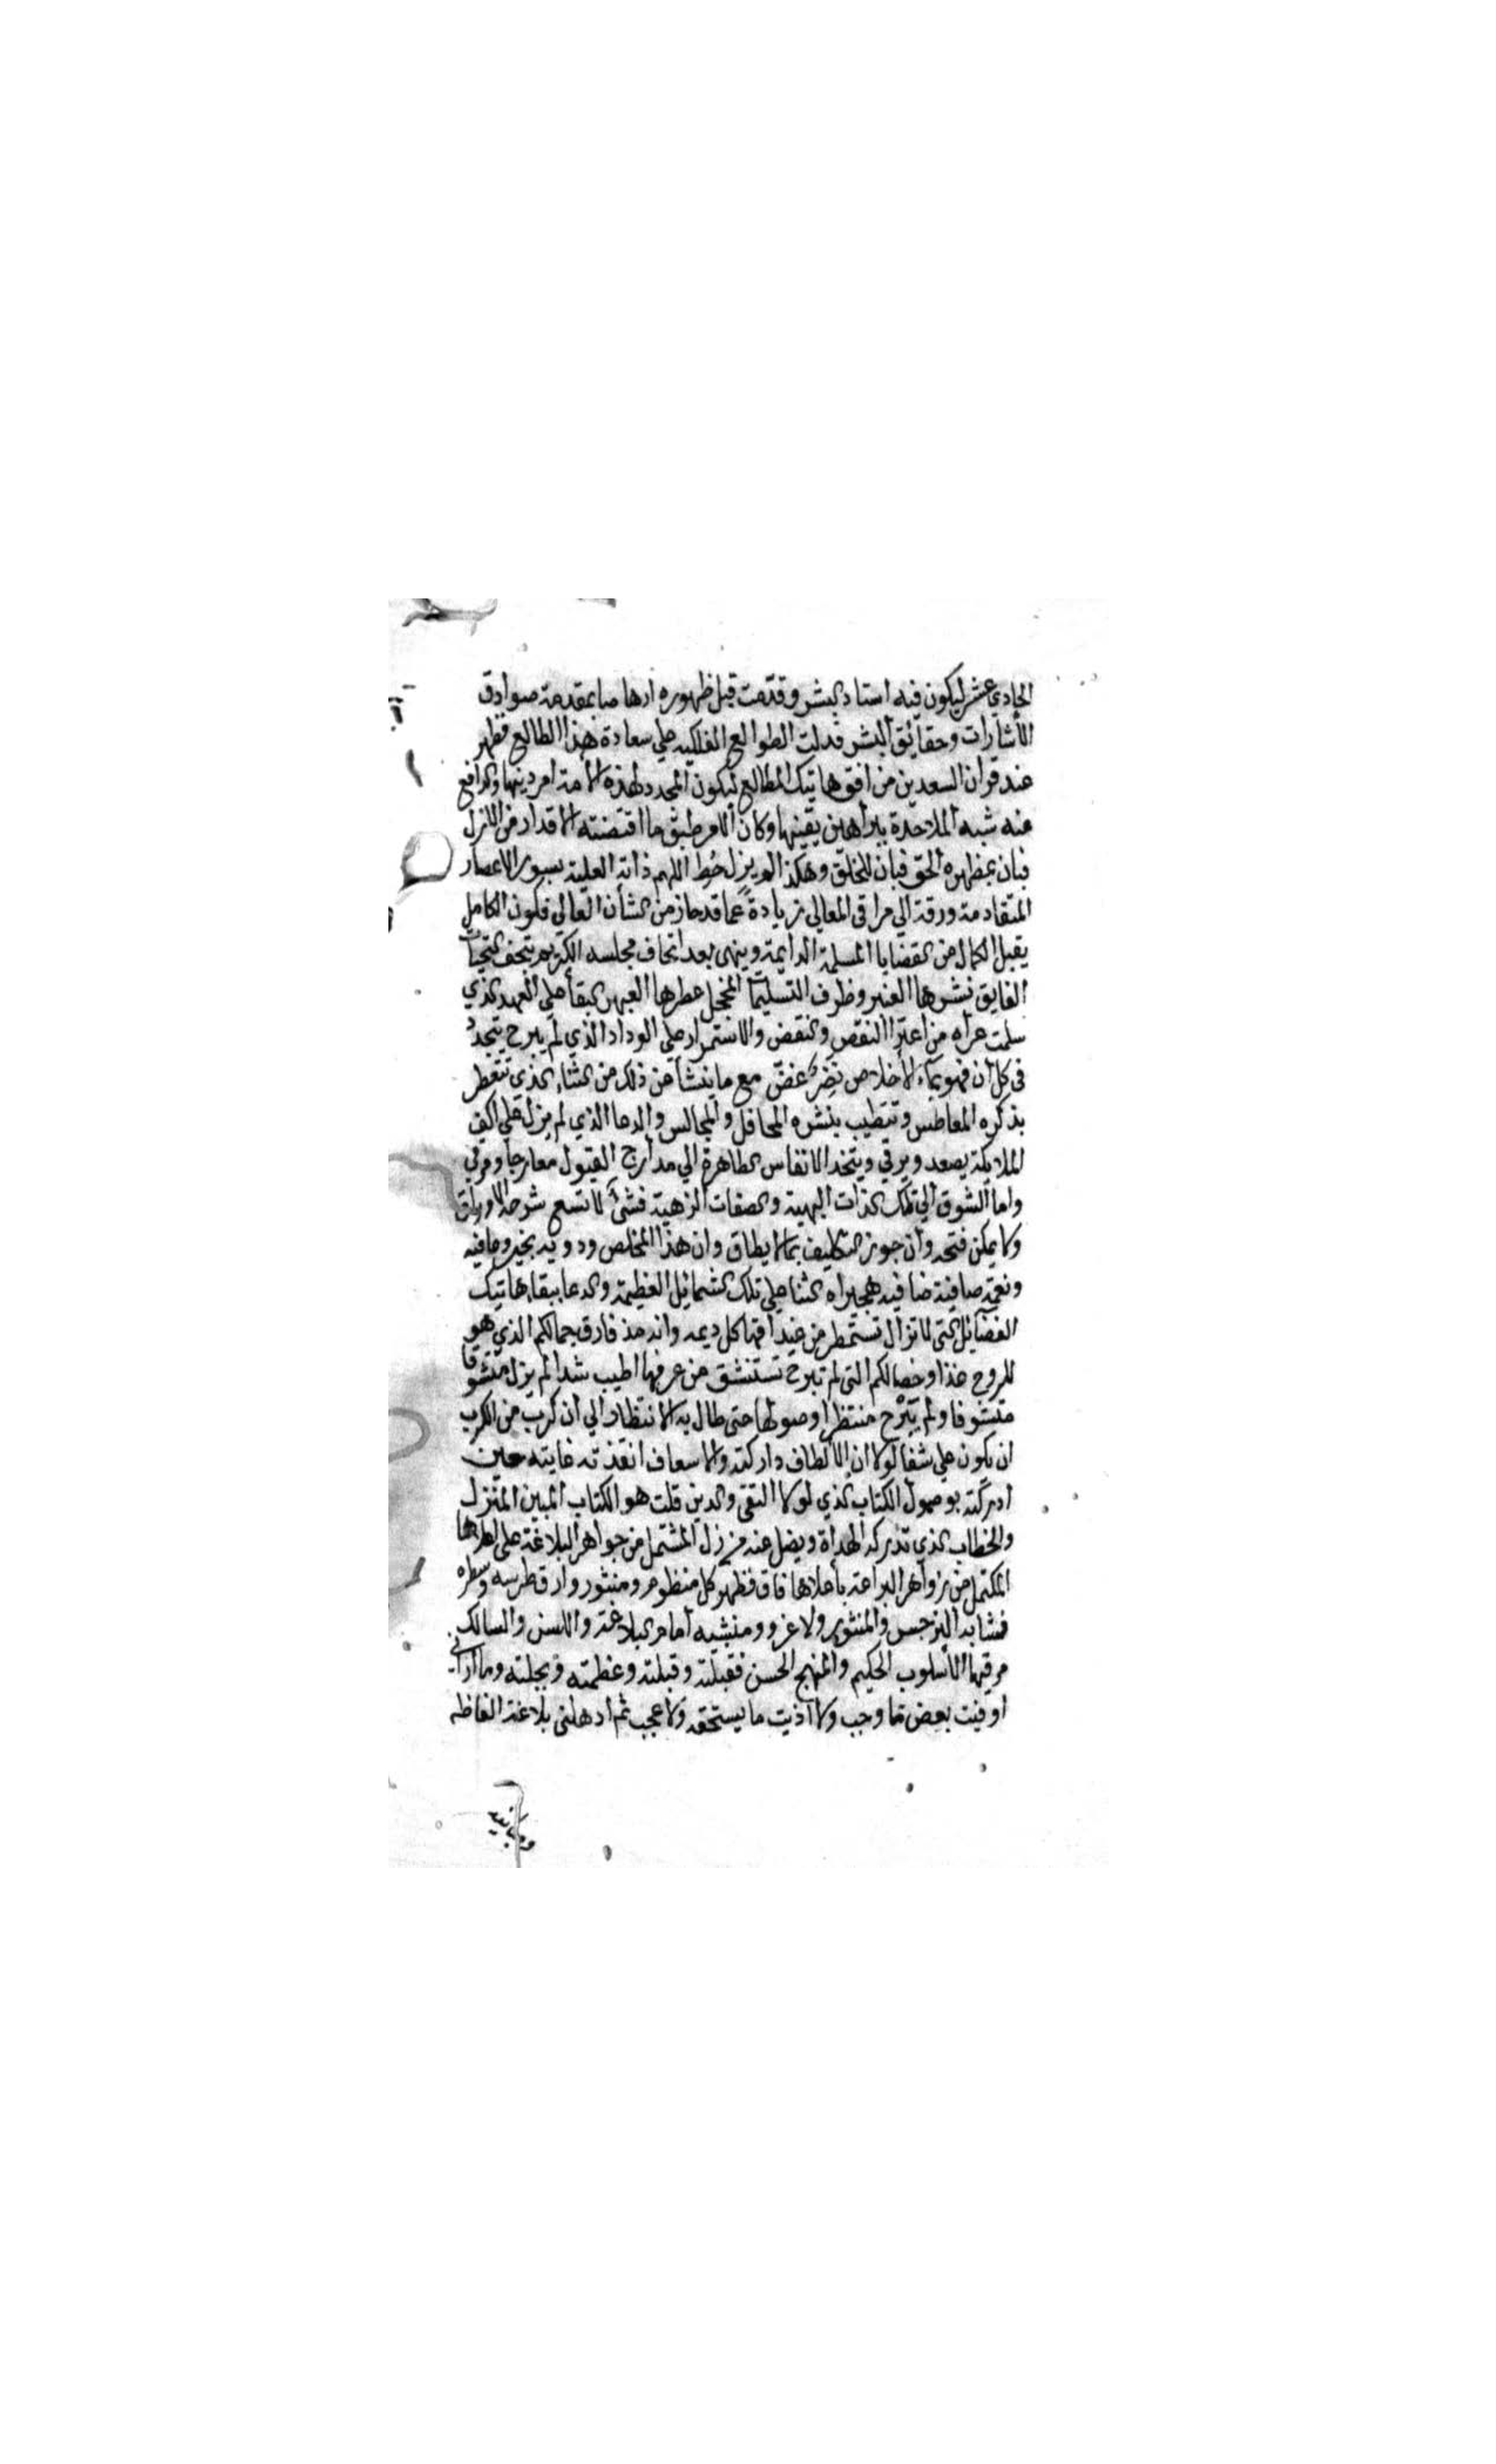 الحادي عشر ليكون فيه استاد البشر وقدمت قبل ظهوره ارهاصا بمقدمة صوادق
الاشارات وحقايق البشر فدلت الطوالع الفلكيه علي سعادة هذا الطالع فظهر
عند قران السعدين من افق هاتيك المطالع ليكون المجدد لهذه الامة امر دينها والدافع
عنه شبه الملاحدة ببراهين يقينها وكان الامر طبق ما اقتضته الاقدار في الازل
فبان بمظهره الحق فبان للخلق وهكذا لم يزل حط اللهم ذاته العلية بسور الاعصار
المتقادمة ورقه الي مراقي المعالي زيادة عما قد حاز من الشان العالي فكون الكامل
يقبل الكمال من القضايا المسلمة الدايمة وينهى بعد اتحاف مجلسه الكريم بتحف التحيات
الفايق نشرها العنبر وظرف التسليمات المخجل عطرها العبهر البقا علي العهد الذي
سلمت عراه من اعترا النقص والنقض والاستمرار علي الوداد الذي لم يبرح يتجدد
في كل ان فهو بماء الاخلاص نضر غض مع ما ينشأ عن ذلك من الثناء الذي تتعطر
بذكره المعاطس وتتطيب بنشره المحافل والمجالس والدعا الذي لم يزل علي اكف
الملايكة يصعد ويرقي ويتخذ الانفاس الطاهرة الي مدارج القبول معارجا ومرقي
واما الشوق الي تلك الذات البهية والصفات الزهية فشئ لا تسع شرحه الاوراق
ولا يمكن فتحه وان جوز التكليف بما لا يطاق وان هذا المخلص ودويه بخير وعافيه
ونعمة صافية ضافيه هجيراه الثنا علي تلك الشمايل العظيمة والدعا ببقا هاتيك
الفضايل التي لا تزال تستمطر من غيداقها كل ديمه وانه مذ فارق جمالكم الذي هو
للروح غذا وخصالكم التي لم تبرح تستنشق من عرفها اطيب شدا لم يزل متشوقا
متشوفا ولم يبرح منتظرا وصولها حتى طال به الانتظار الي ان كرب من الكرب
ان يكون علي شفا لولا ان الالطاف داركته والاسعاف انقذته غايته حين
ادركته بوصول الكتاب الذي لولا التقى والدين قلت هو الكتاب المبين المنزل
والخطاب الذي تدركه الهداة ويضل عنه من زل المشتمل من جواهر البلاغة علي اغلاها
المكتمل من زواهر البراعة باعلاها فاق فظهر كل منظوم ومنثور وارق طرسه وسطره
فشابه النرجس والمنثور ولا غرو ومنشيه امام البلاغة واللسن والسالك
مرقيها الاسلوب الحكيم والمنهج الحسن فقبلته وقبلته وعظمته وبجلته وما اراني
اوفيت بعض ما وجب ولا اديت ما يستحقه ولا عجب ثم ادهلني بلاغة الفاظه